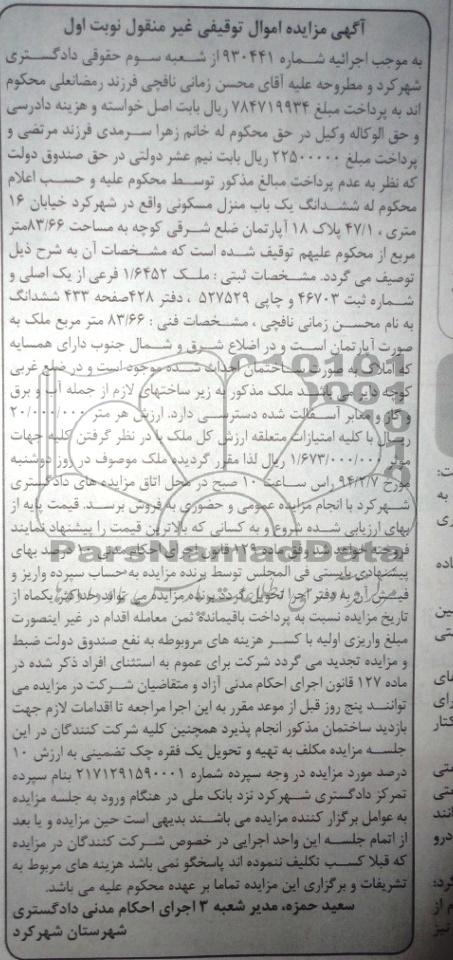 آگهی مزایده اموال توقیفی غیر منقول نوبت اول
به موجب اجرائیه شماره ۹۳۰۴۴۱ از شعبه سوم حقوقی دادگستری
شهرکرد و مطروحه علیه آقای محسن زمانی نافچی فرزند رمضانعلی محکوم
اند به پرداخت مبلغ ۷۸۴۷۱۹۹۳۴ ریال بابت اصل خواسته و هزینه دادرسی
و حق الوکاله وکیل در حق محکوم له خانم زهرا سرمدی فرزند مرتضی و
پرداخت مبلغ ۲۲۵۰۰۰۰۰ ریال بابت نیم عشر دولتی در حق صندوق دولت
که نظر به عدم پرداخت مبالغ مذکور توسط محکوم علیه و حسب اعلام
محکوم له ششدانگ یک باب منزل مسکونی واقع در شهرکرد خیابان ۱۶
متری ، ۴۷/۱ پلاک ۱۸ آپارتمان ضلع شرقی کوچه به مساحت ۸۳/۶۶متر
مربع از محکوم علیهم توقیف شده است که مشخصات آن به شرح ذیل
توصیف می گردد. مشخصات ثبتی : ملک ۱/۶۴۵۲ فرعی از یک اصلی و
شماره ثبت ۴۶۷۰۳ و چاپی ۵۲۷۵۲۹ ، دفتر ۴۲۸صفحه ۴۳۳ ششدانگ
به نام محسن زمانی نافچی ، مشخصات فنی : ۸۳/۶۶ متر مربع ملک به
صورت آپارتمان است و در اضلاع شرق و شمال جنوب دارای همسایه
که املاک به صورت ساختمان احداث شده موجود است و در ضلع غربی
کوچه دایر می باشد ملک مذکور به زیر ساختهای لازم از جمله آب و برق
و گاز و معابر آسفالت شده دسترسی دارد. ارزش هر متر ۲۰/۰۰۰/۰۰۰
ریال با کلیه امتیازات متعلقه ارزش کل ملک با در نظر گرفتن کلیه جهات
موثر ۱/۶۷۳/۰۰۰/۰۰۰ ریال لذا مقرر گردیده ملک موصوف در روز دوشنبه
مورخ ۹۴/۲/۷ راس ساعت ۱۰ صبح در محل اتاق مزایده های دادگستری
شهرکرد با انجام مزایده عمومی و حضوری به فروش برسد. قیمت پایه از
بهای ارزیابی شده شروع و به کسانی که بالاترین قیمت را پیشنهاد نمایند
فروخته خواهد شد وفق ماده ۱۲۹ قانون اجرای احکام مدنی ۱۰ درصد بهای
پیشنهادی بایستی فی المجلس توسط برنده مزایده به حساب سپرده واریز و
فیش آن به دفتر اجرا تحویل گردد برنده مزایده می تواند حداکثر یکماه از
تاریخ مزایده نسبت به پرداخت باقیمانده ثمن معامله اقدام در غیر اینصورت
مبلغ واریزی اولیه با کسر هزینه های مربوطه به نفع صندوق دولت ضبط
و مزایده تجدید می گردد شرکت برای عموم به استثنای افراد ذکر شده در
ماده ۱۲۷ قانون اجرای احکام مدنی آزاد و متقاضیان شرکت در مزایده می
توانند پنج روز قبل از موعد مقرر به این اجرا مراجعه تا اقدامات لازم جهت
بازدید ساختمان مذکور انجام پذیرد همچنین کلیه شرکت کنندگان در این
جلسه مزایده مکلف به تهیه و تحویل یک فقره چک تضمینی به ارزش ۱۰
درصد مورد مزایده در وجه سپرده شماره ۲۱۷۱۲۹۱۵۹۰۰۰۱ بنام سپرده
تمرکز دادگستری شهرکرد نزد بانک ملی در هنگام ورود به جلسه مزایده
به عوامل برگزار کننده مزایده می باشند بدیهی است حین مزایده و یا بعد
از اتمام جلسه این واحد اجرایی در خصوص شرکت کنندگان در مزایده
که قبلا کسب تکلیف ننموده اند پاسخگو نمی باشد هزینه های مربوط به
تشریفات و برگزاری این مزایده تماما بر عهده محکوم علیه می باشد.
سعید حمزه، مدیر شعبه ۳ اجرای احکام مدنی دادگستری
شهرستان شهرکرد
ParsNamadData